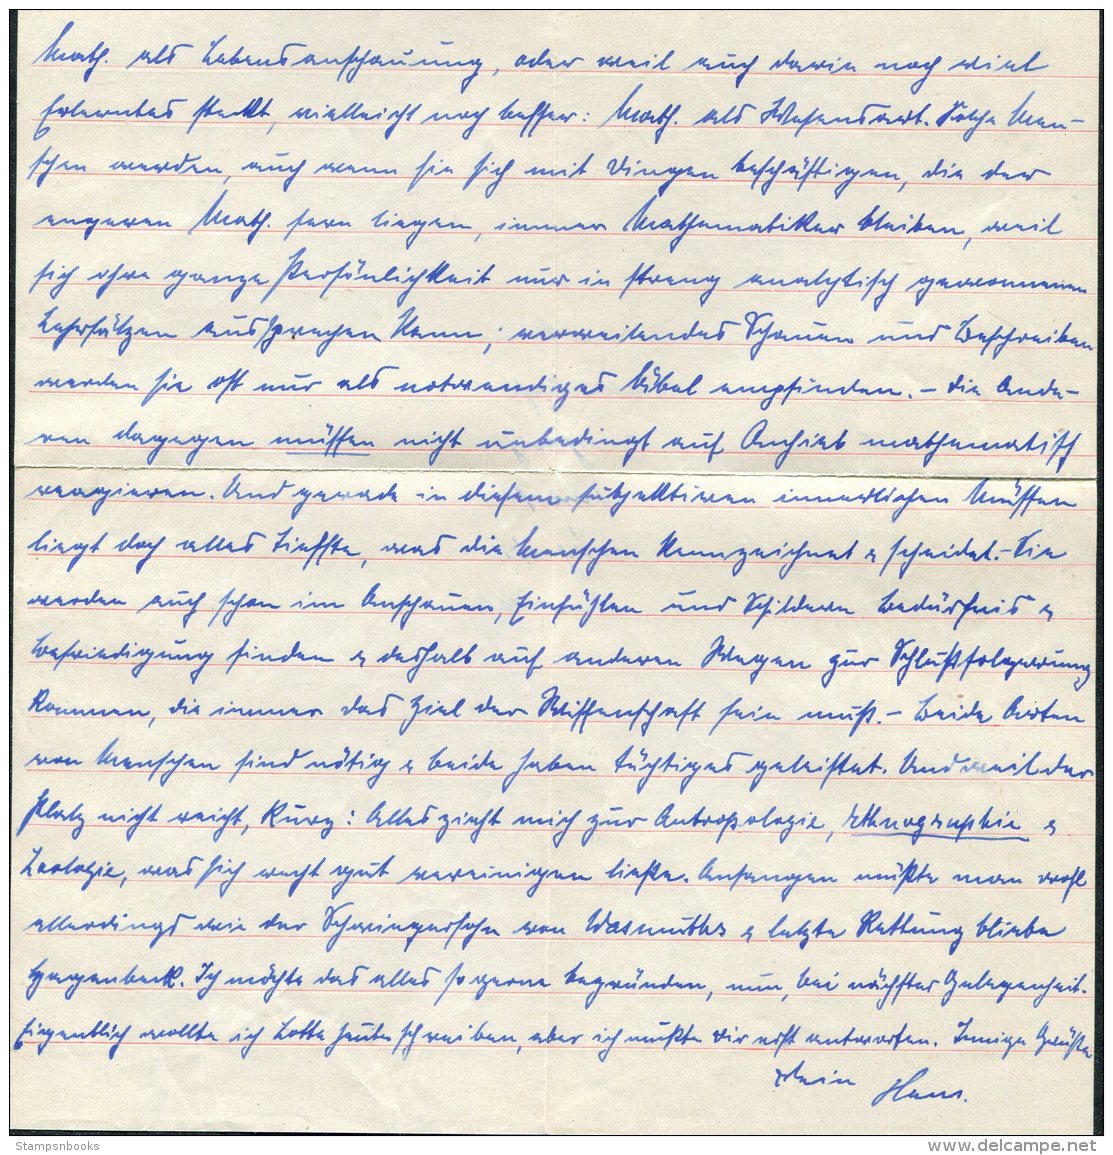 Math. als Lebensanschauung, oder weil auch darin noch viel
Erlerntes steckt, vielleicht noch besser: Math. als Wesensart. Solche Men-
schen werden, auch wenn sie sich mit Dingen beschäftigen, die der
engeren Math. fern liegen, immer Mathematiker bleiben, weil
sich ihre ganze Persönlichkeit nur in streng analytisch gewonnenen
Lehrsätzen aussprechen kann; verweilendes Schauen und Beschreiben
werden sie oft nur als notwendiges Übel empfinden. – Die Ande-
ren dagegen müssen nicht unbedingt auf Anhieb mathematisch
reagieren. Und gerade in diesem subjektiven innerlichen Müssen
liegt doch alles Tiefste, was die Menschen kennzeichnet & scheidet. – Sie
werden auch schon im Anschauen, Einfühlen und Schildern Bedürfnis &
Befriedigung finden & deshalb auf anderen Wegen zur Schlußfolgerung
kommen, die immer das Ziel der Wissenschaft sein muß. – Beide Arten
von Menschen sind nötig & beide haben tüchtiges geleistet. Und weil der
Platz nicht reicht, kurz: Alles zieht mich zur Antropologie, Ethnographie &
Zoologie, was sich recht gut vereinigen ließe. Anfangen müßte man wohl
allerdings wie der Schwiegersohn von Wasmuths & letzte Rettung bliebe
Hagenbeck. Ich möchte das alles so gerne begründen, nun, bei nächster Gelegenheit.
Eigentlich wollte ich Lotte heute schreiben, aber ich mußte Dir erst antworten. Innige Grüße
Dein Hans.
Stampsnbooks
delcampe.net